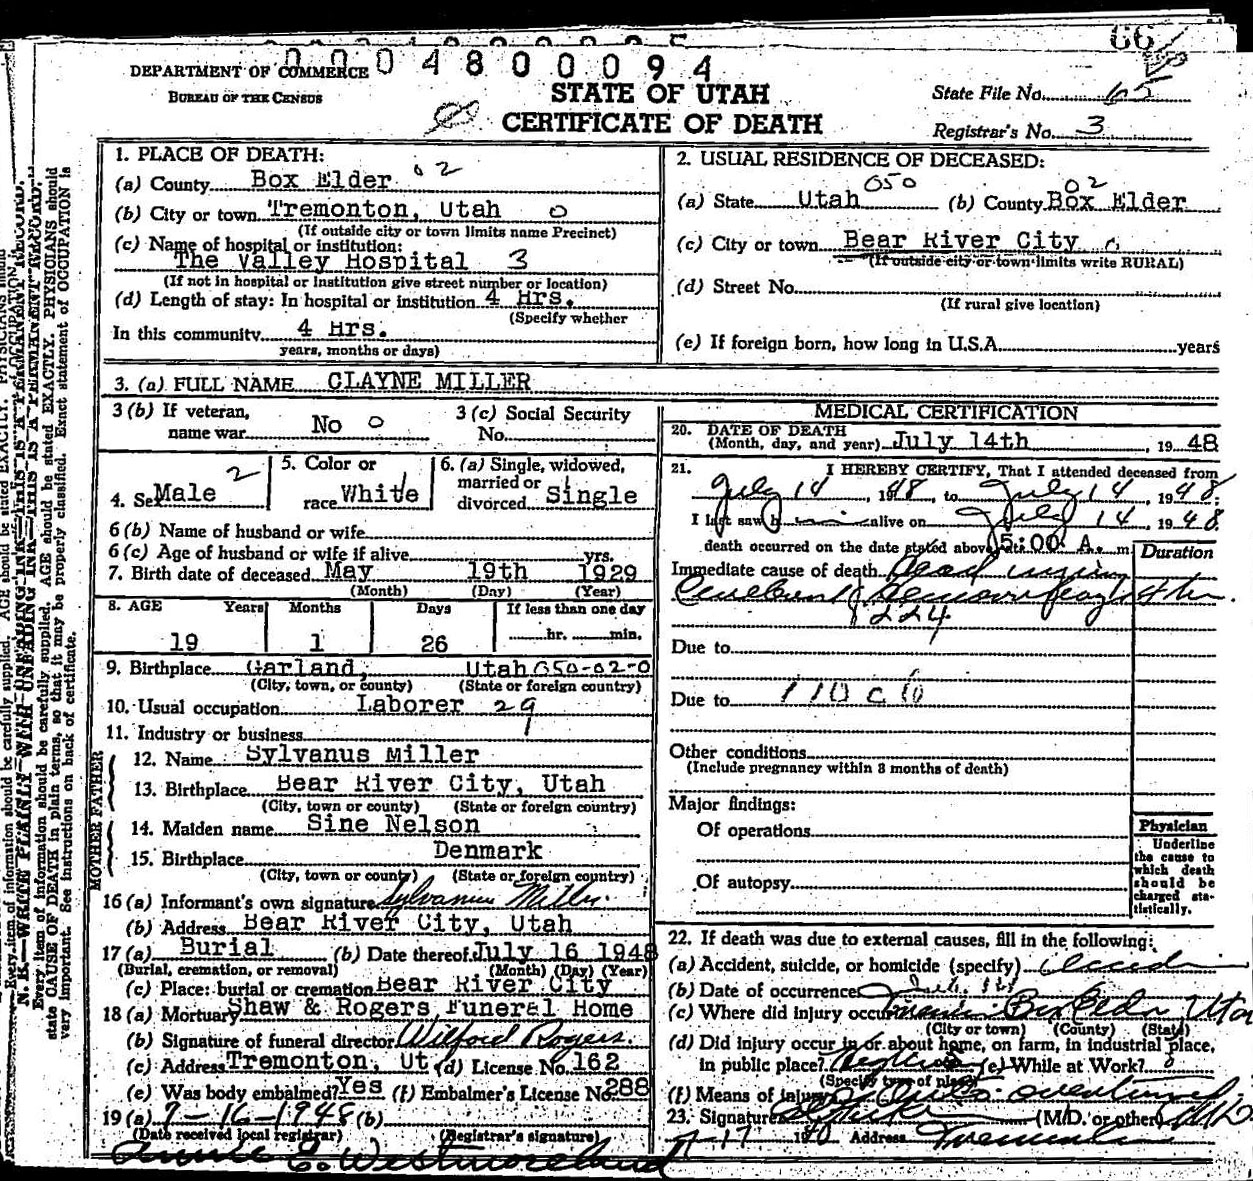 66
0 0 0 4 8 0 0 0 9 4
DEPARTMENT OF COMMERCE
BUREAU OF THE CENSUS
STATE OF UTAH
CERTIFICATE OF DEATH
State File No. 65
Registrar's No. 3
1. PLACE OF DEATH:
(a) County Box Elder 02
(b) City or town Tremonton, Utah 0
(If outside city or town limits name Precinct)
(c) Name of hospital or institution:
The Valley Hospital 3
(If not in hospital or institution give street number or location)
(d) Length of stay: In hospital or institution 4 Hrs.
(Specify whether
In this community 4 Hrs.
years, months or days)
2. USUAL RESIDENCE OF DECEASED:
050 02
(a) State Utah (b) County Box Elder
(c) City or town Bear River City
(If outside city or town limits write RURAL)
(d) Street No.
(If rural give location)
(e) If foreign born, how long in U.S.A. years
3. (a) FULL NAME CLAYNE MILLER
3 (b) If veteran,
name war No 0
3 (c) Social Security
No.
4. Sex Male 2
5. Color or
race White
6. (a) Single, widowed,
married or
divorced Single
6 (b) Name of husband or wife
6 (c) Age of husband or wife if alive yrs.
7. Birth date of deceased May 19th 1929
(Month) (Day) (Year)
8. AGE Years Months Days If less than one day
19 1 26 hr. min.
9. Birthplace Garland, Utah 050-02-0
(City, town, or county) (State or foreign country)
10. Usual occupation Laborer 29
11. Industry or business
FATHER
12. Name Sylvanus Miller
13. Birthplace Bear River City, Utah
(City, town or county) (State or foreign country)
MOTHER
14. Maiden name Sine Nelson
15. Birthplace Denmark
(City, town or county) (State or foreign country)
16 (a) Informant's own signature Sylvanus Miller
(b) Address Bear River City, Utah
17 (a) Burial (b) Date thereof July 16 1948
(Burial, cremation, or removal) (Month) (Day) (Year)
(c) Place: burial or cremation Bear River City
18 (a) Mortuary Shaw & Rogers Funeral Home
(b) Signature of funeral director Wilford Rogers
(c) Address Tremonton, Ut (d) License No. 162
(e) Was body embalmed? Yes (f) Embalmer's License No. 288
19 (a) 7-16-1948 (b)
(Date received local registrar) (Registrar's signature)
E. Westmoreland
MEDICAL CERTIFICATION
20. DATE OF DEATH
(Month, day, and year) July 14th, 19 48
21. I HEREBY CERTIFY, That I attended deceased from
July 14, 1948, to July 14, 1948.
I last saw him alive on July 14, 1948
death occurred on the date stated above, at 5:00 A. m.
Duration
Immediate cause of death Head injury
Cerebral Hemorrhage 4 hrs.
224
Due to
Due to 110 c
Other conditions
(Include pregnancy within 3 months of death)
Major findings:
Of operations
Of autopsy
Physician
Underline
the cause to
which death
should be
charged sta-
tistically.
22. If death was due to external causes, fill in the following:
(a) Accident, suicide, or homicide (specify)
(b) Date of occurrence
(c) Where did injury occur Box Elder Utah
(City or town) (County) (State)
(d) Did injury occur in or about home, on farm, in industrial place,
in public place? Highway (e) While at Work?
(Specify type of place)
(f) Means of injury Auto overturned
23. Signature (M.D. or other) MD
7-17 19 Address Tremonton
N. B.—WRITE PLAINLY WITH UNFADING INK—THIS IS A PERMANENT RECORD.
Every item of information should be carefully supplied. AGE should be stated EXACTLY. PHYSICIANS should
state CAUSE OF DEATH in plain terms, so that it may be properly classified. Exact statement of OCCUPATION is
very important. See instructions on back of certificate.